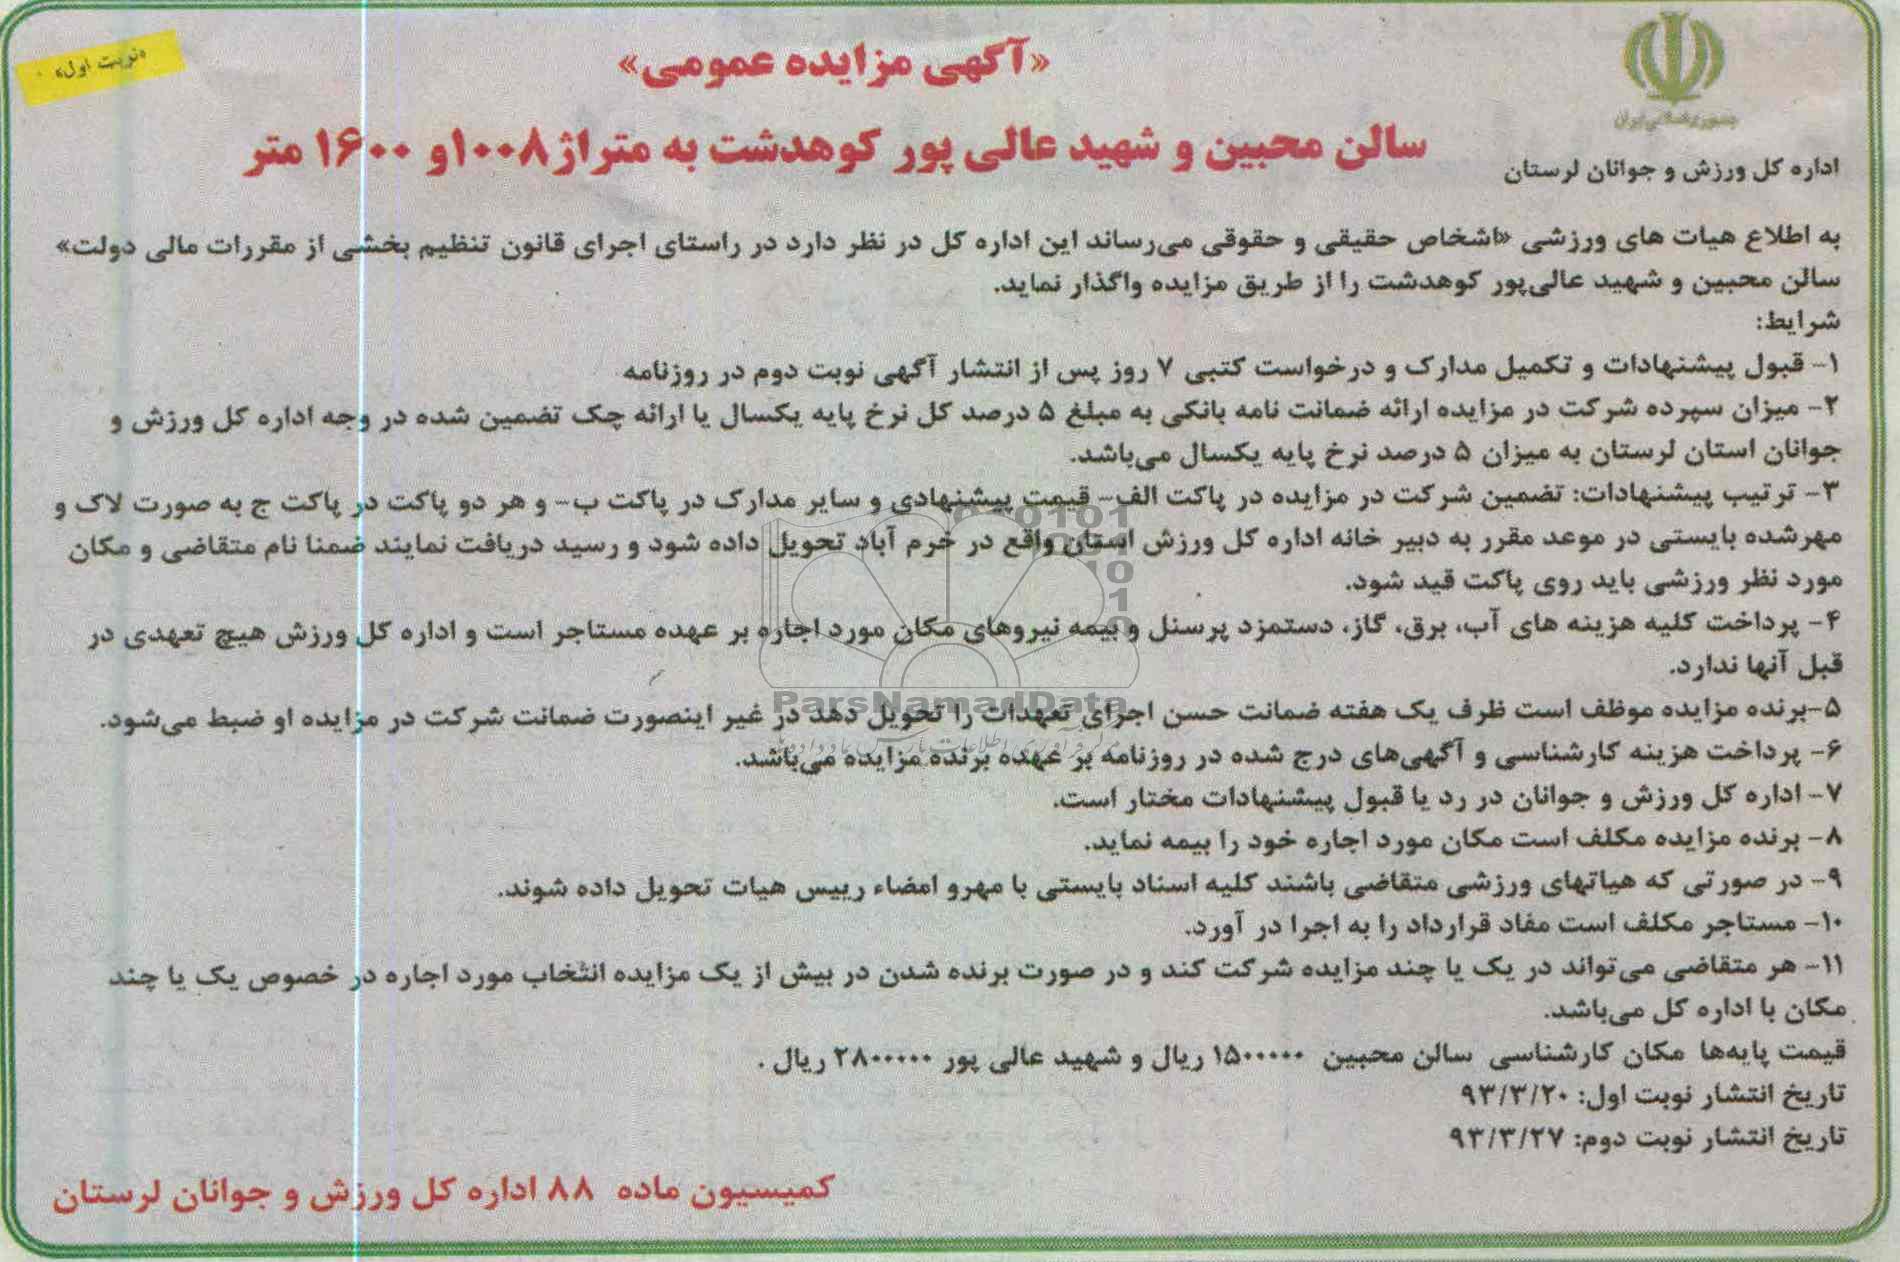 «نوبت اول»
«آگهی مزایده عمومی»
جمهوری اسلامی ایران
سالن محبین و شهید عالی پور کوهدشت به متراژ ۱۰۰۸و ۱۶۰۰ متر
اداره کل ورزش و جوانان لرستان
به اطلاع هیات های ورزشی «اشخاص حقیقی و حقوقی می‌رساند این اداره کل در نظر دارد در راستای اجرای قانون تنظیم بخشی از مقررات مالی دولت»
سالن محبین و شهید عالی‌پور کوهدشت را از طریق مزایده واگذار نماید.
شرایط:
۱- قبول پیشنهادات و تکمیل مدارک و درخواست کتبی ۷ روز پس از انتشار آگهی نوبت دوم در روزنامه
۲- میزان سپرده شرکت در مزایده ارائه ضمانت نامه بانکی به مبلغ ۵ درصد کل نرخ پایه یکسال یا ارائه چک تضمین شده در وجه اداره کل ورزش و
جوانان استان لرستان به میزان ۵ درصد نرخ پایه یکسال می‌باشد.
۳- ترتیب پیشنهادات: تضمین شرکت در مزایده در پاکت الف- قیمت پیشنهادی و سایر مدارک در پاکت ب- و هر دو پاکت در پاکت ج به صورت لاک و
مهرشده بایستی در موعد مقرر به دبیر خانه اداره کل ورزش استان واقع در خرم آباد تحویل داده شود و رسید دریافت نمایند ضمنا نام متقاضی و مکان
مورد نظر ورزشی باید روی پاکت قید شود.
۴- پرداخت کلیه هزینه های آب، برق، گاز، دستمزد پرسنل و بیمه نیروهای مکان مورد اجاره بر عهده مستاجر است و اداره کل ورزش هیچ تعهدی در
قبل آنها ندارد.
ParsNamadData
۵-برنده مزایده موظف است ظرف یک هفته ضمانت حسن اجرای تعهدات را تحویل دهد در غیر اینصورت ضمانت شرکت در مزایده او ضبط می‌شود.
۶- پرداخت هزینه کارشناسی و آگهی‌های درج شده در روزنامه بر عهده برنده مزایده می‌باشد.
۷- اداره کل ورزش و جوانان در رد یا قبول پیشنهادات مختار است.
۸- برنده مزایده مکلف است مکان مورد اجاره خود را بیمه نماید.
۹- در صورتی که هیاتهای ورزشی متقاضی باشند کلیه اسناد بایستی با مهرو امضاء رییس هیات تحویل داده شوند.
۱۰- مستاجر مکلف است مفاد قرارداد را به اجرا در آورد.
۱۱- هر متقاضی می‌تواند در یک یا چند مزایده شرکت کند و در صورت برنده شدن در بیش از یک مزایده انتخاب مورد اجاره در خصوص یک یا چند
مکان با اداره کل می‌باشد.
قیمت پایه‌ها مکان کارشناسی سالن محبین ۱۵۰۰۰۰۰ ریال و شهید عالی پور ۲۸۰۰۰۰۰ ریال .
تاریخ انتشار نوبت اول: ۹۳/۳/۲۰
تاریخ انتشار نوبت دوم: ۹۳/۳/۲۷
کمیسیون ماده ۸۸ اداره کل ورزش و جوانان لرستان